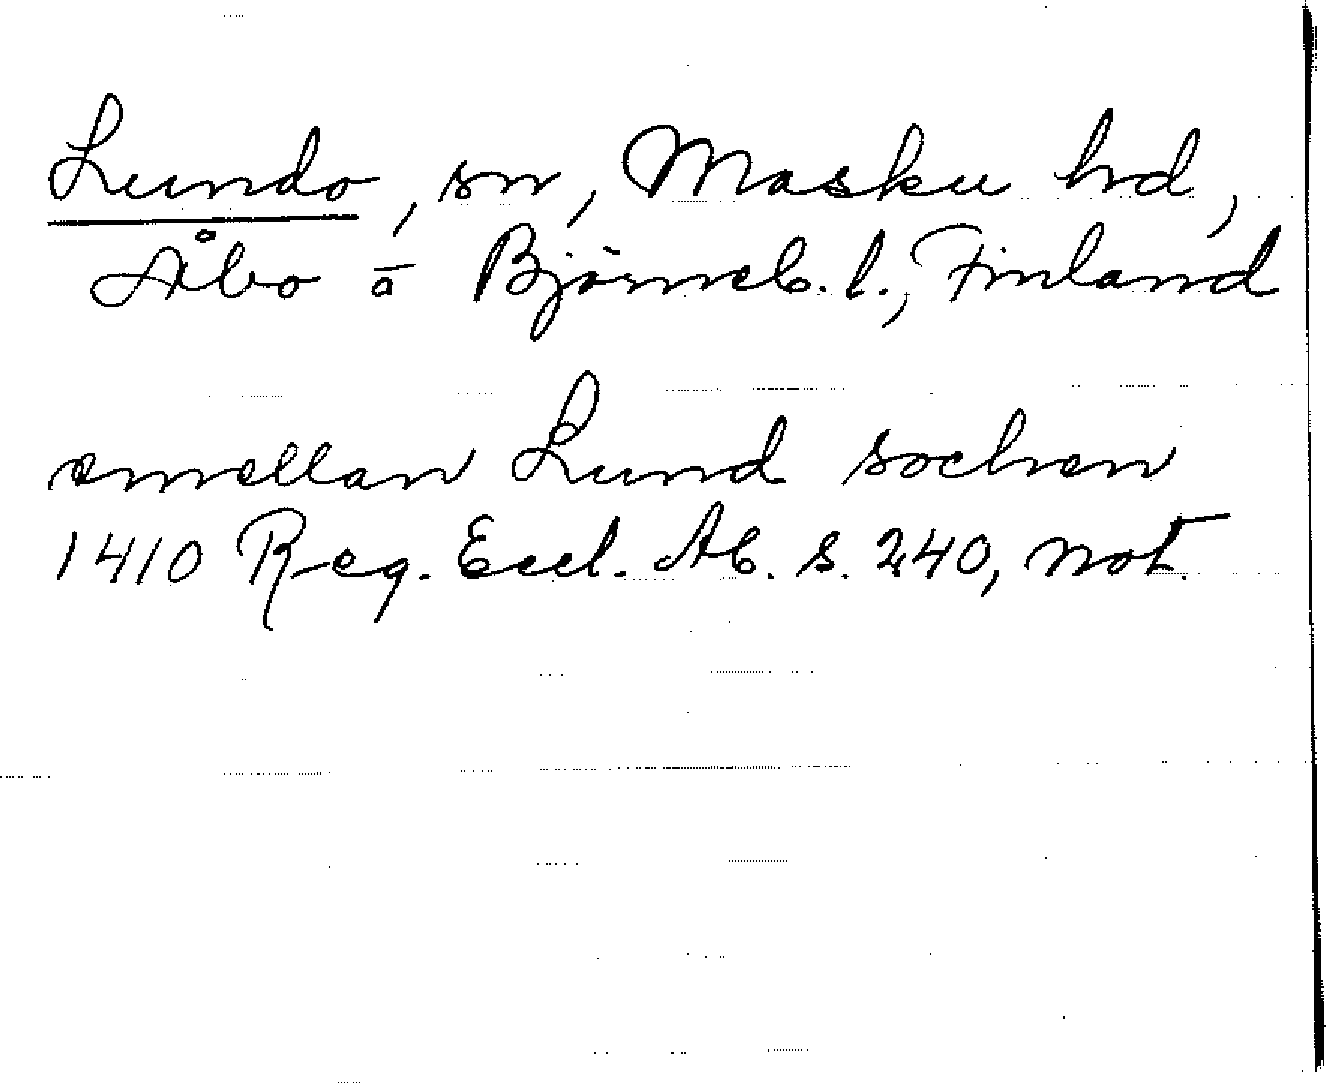 Lundo, sn, Masku hd,
Åbo o Björneb. l., Finland
emellan Lund sochen
1410 Reg. Eccl. Ab. s. 240, not.